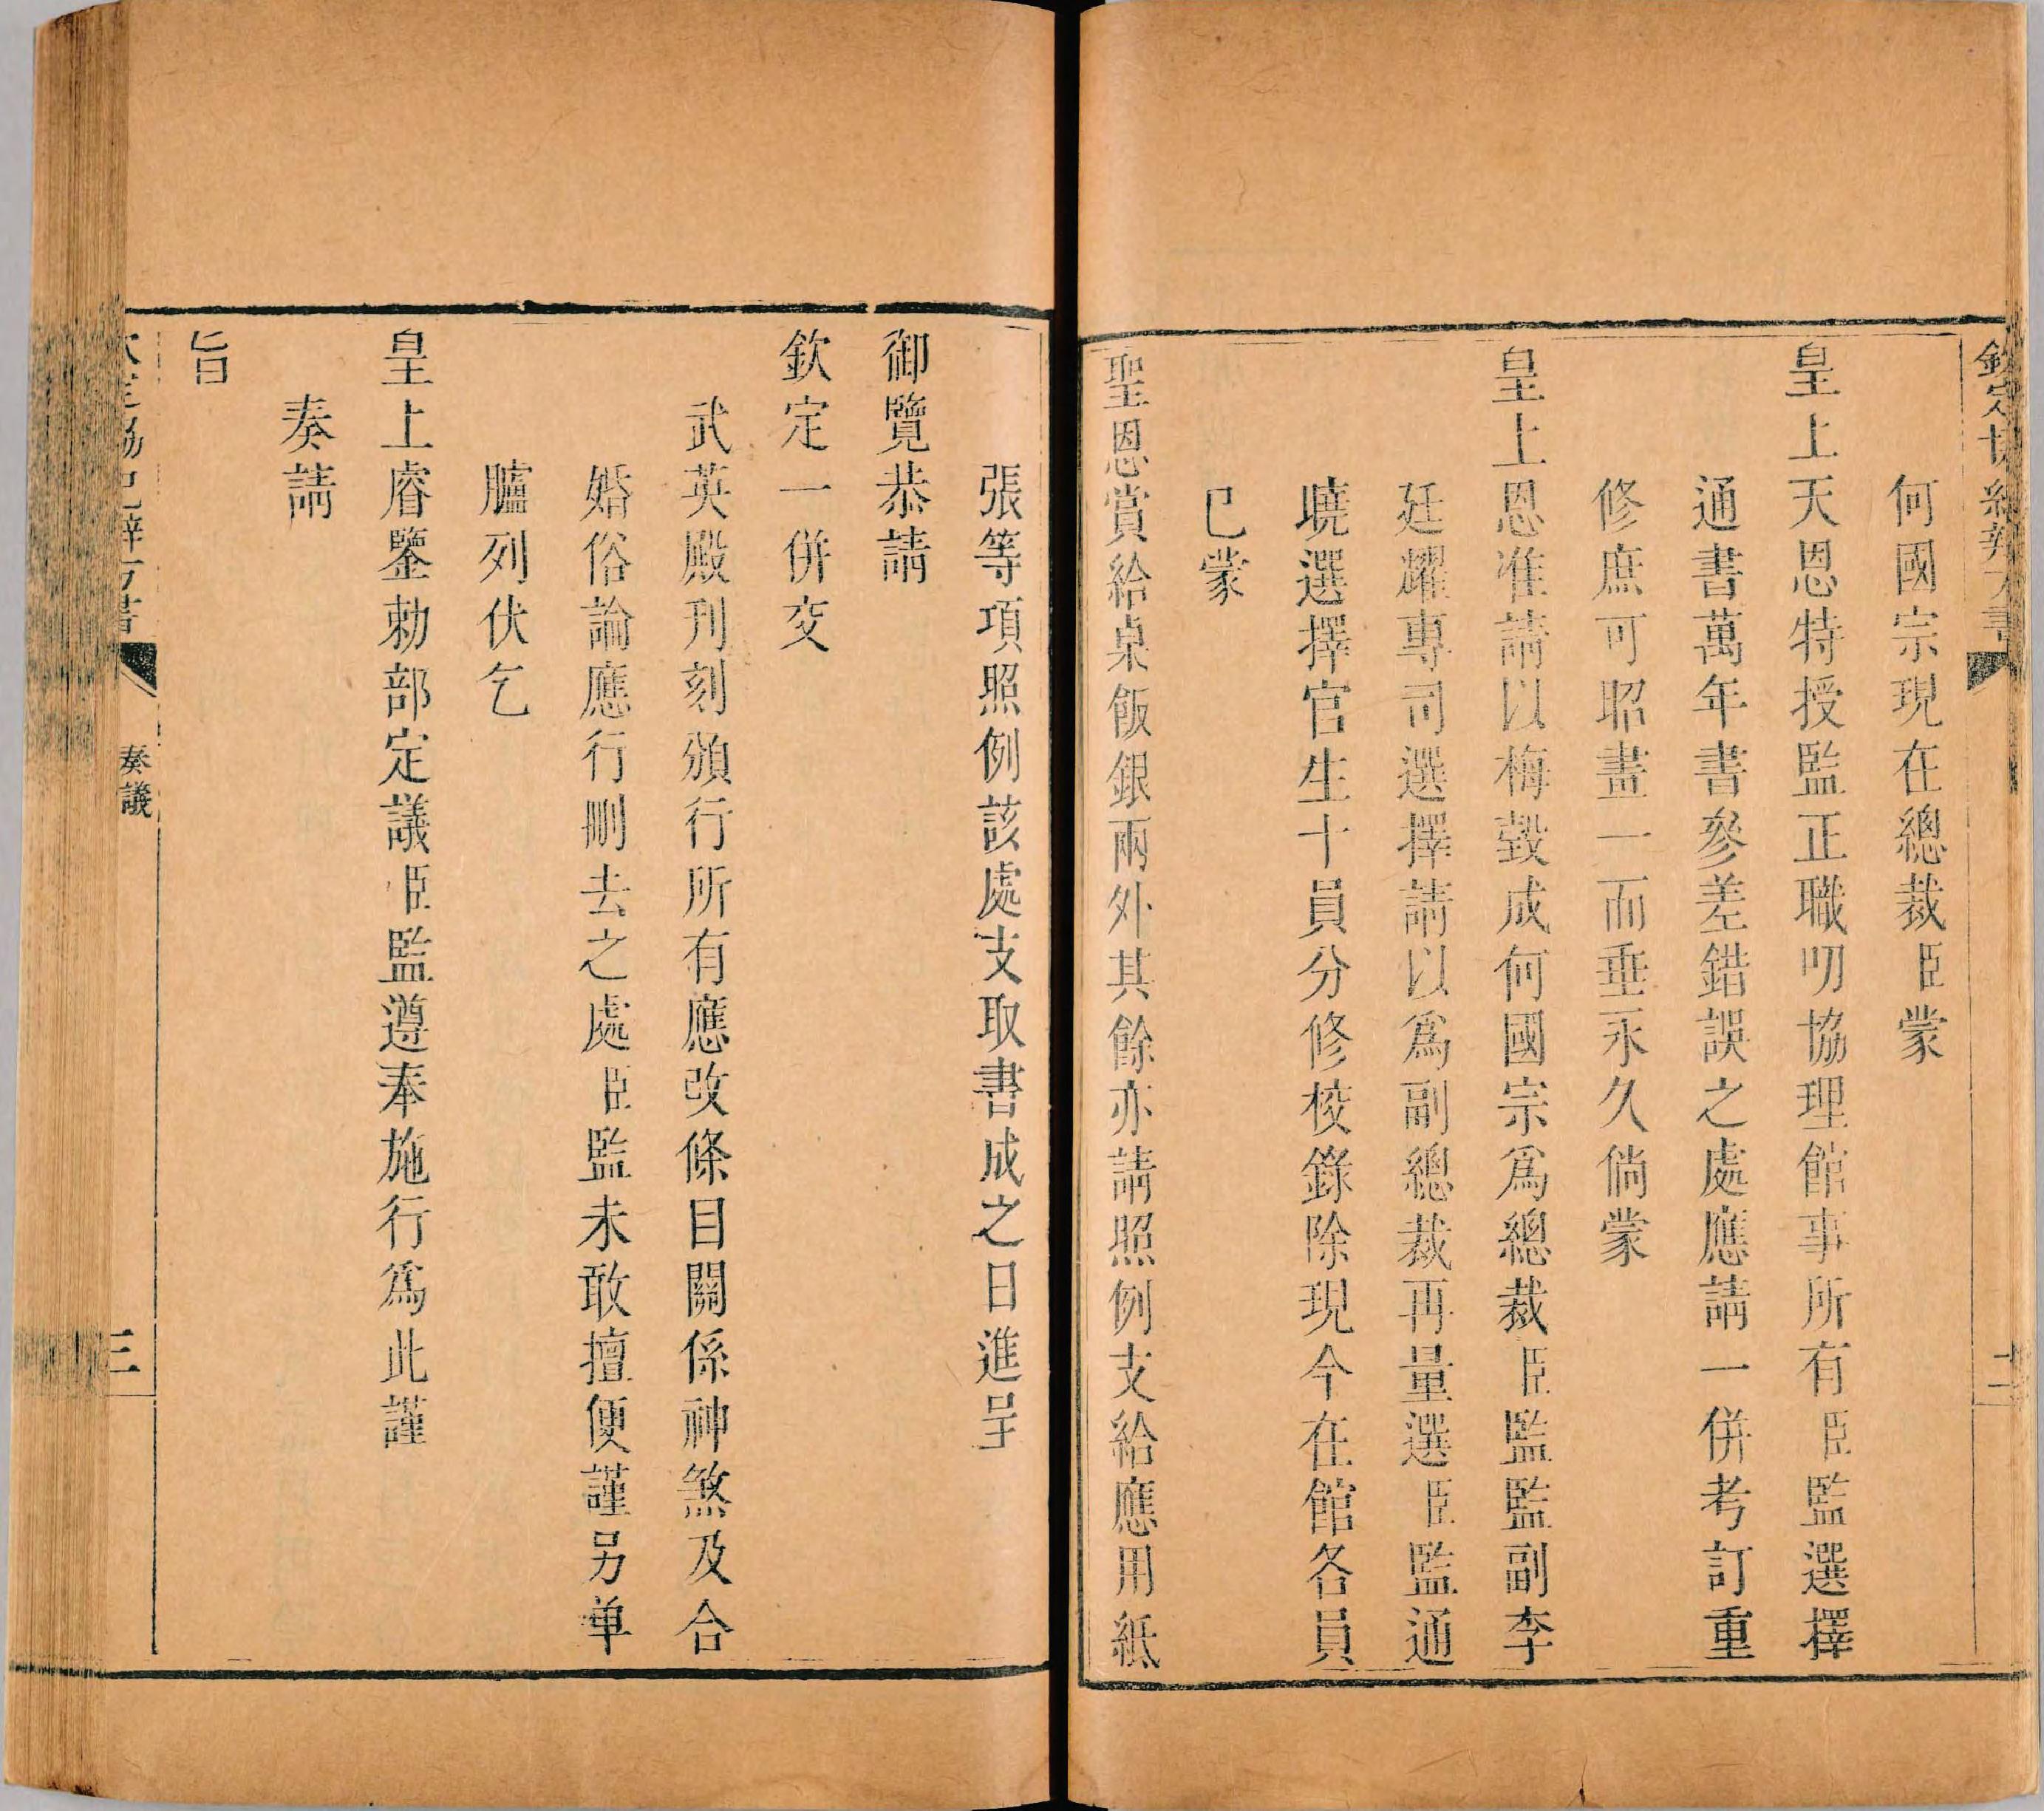 何國宗現在總裁臣蒙
皇上天恩特授監正職叨協理館事所有臣監選擇
通書萬年書參差錯誤之處應請一併考訂重
修庶可昭畫一而垂永久倘蒙
皇上恩准請以梅瑴成何國宗爲總裁臣監監副李
廷耀專司選擇請以爲副總裁再量選臣監通
曉選擇官生十員分修校錄除現今在館各員
已蒙
聖恩賞給桌飯銀兩外其餘亦請照例支給應用紙
張等項照例該處支取書成之日進呈
御覽恭請
欽定一併交
武英殿刊刻頒行所有應改條目關係神煞及合
婚俗論應行刪去之處臣監未敢擅便謹另单
臚列伏乞
皇上睿鑒勅部定議臣監遵奉施行爲此謹
奏請
旨
奏議
三